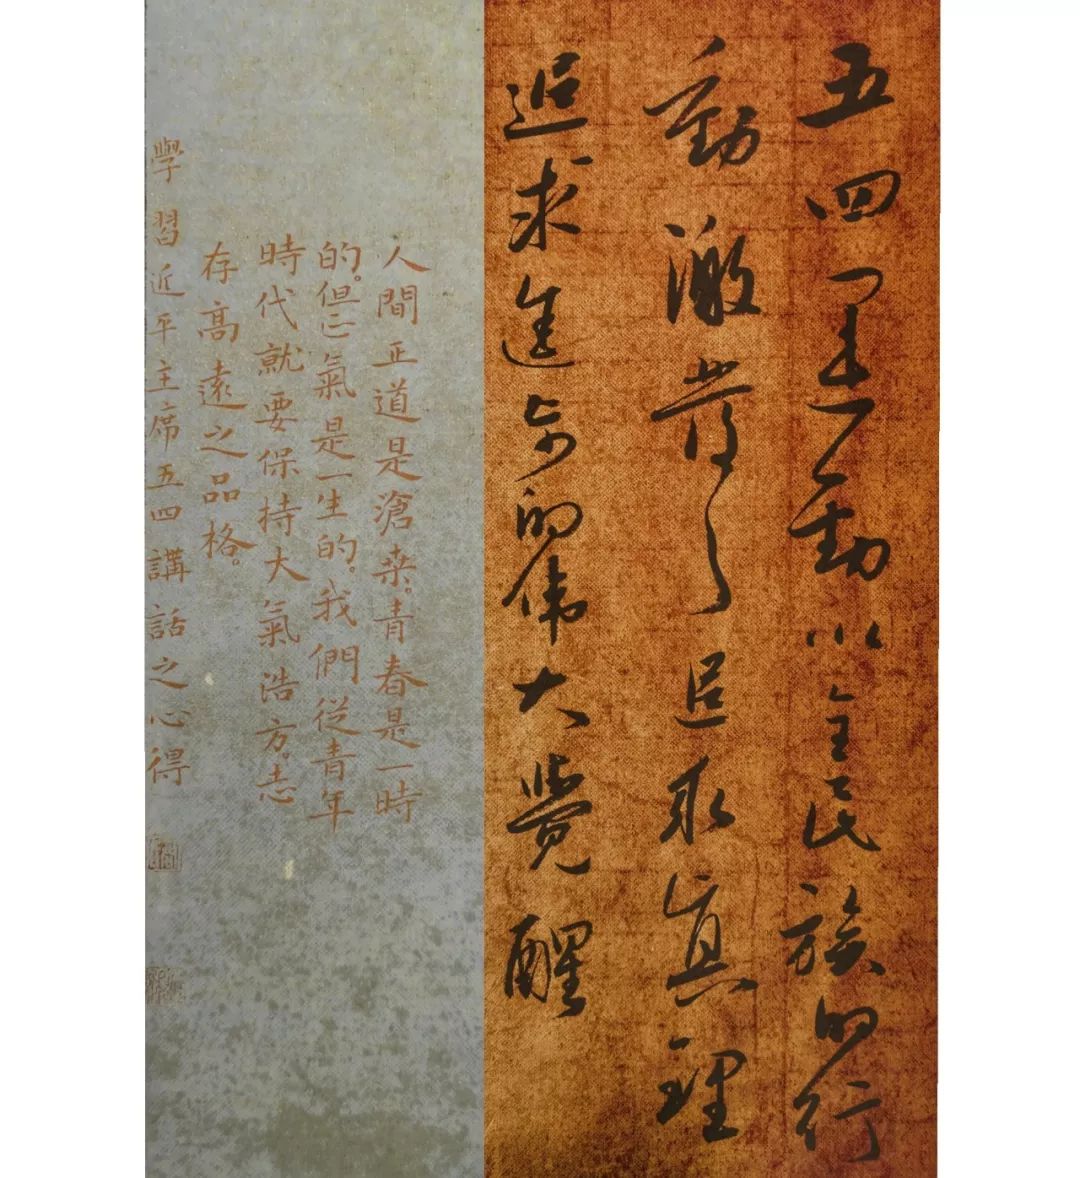 五四運動以全民族的行
動激發了追求真理
追求進步的偉大覺醒
人間正道是滄桑。青春是一時
的。但正氣是一生的。我們從青年
時代就要保持大氣浩方。志
存高遠之品格。
學習近平主席五四講話之心得